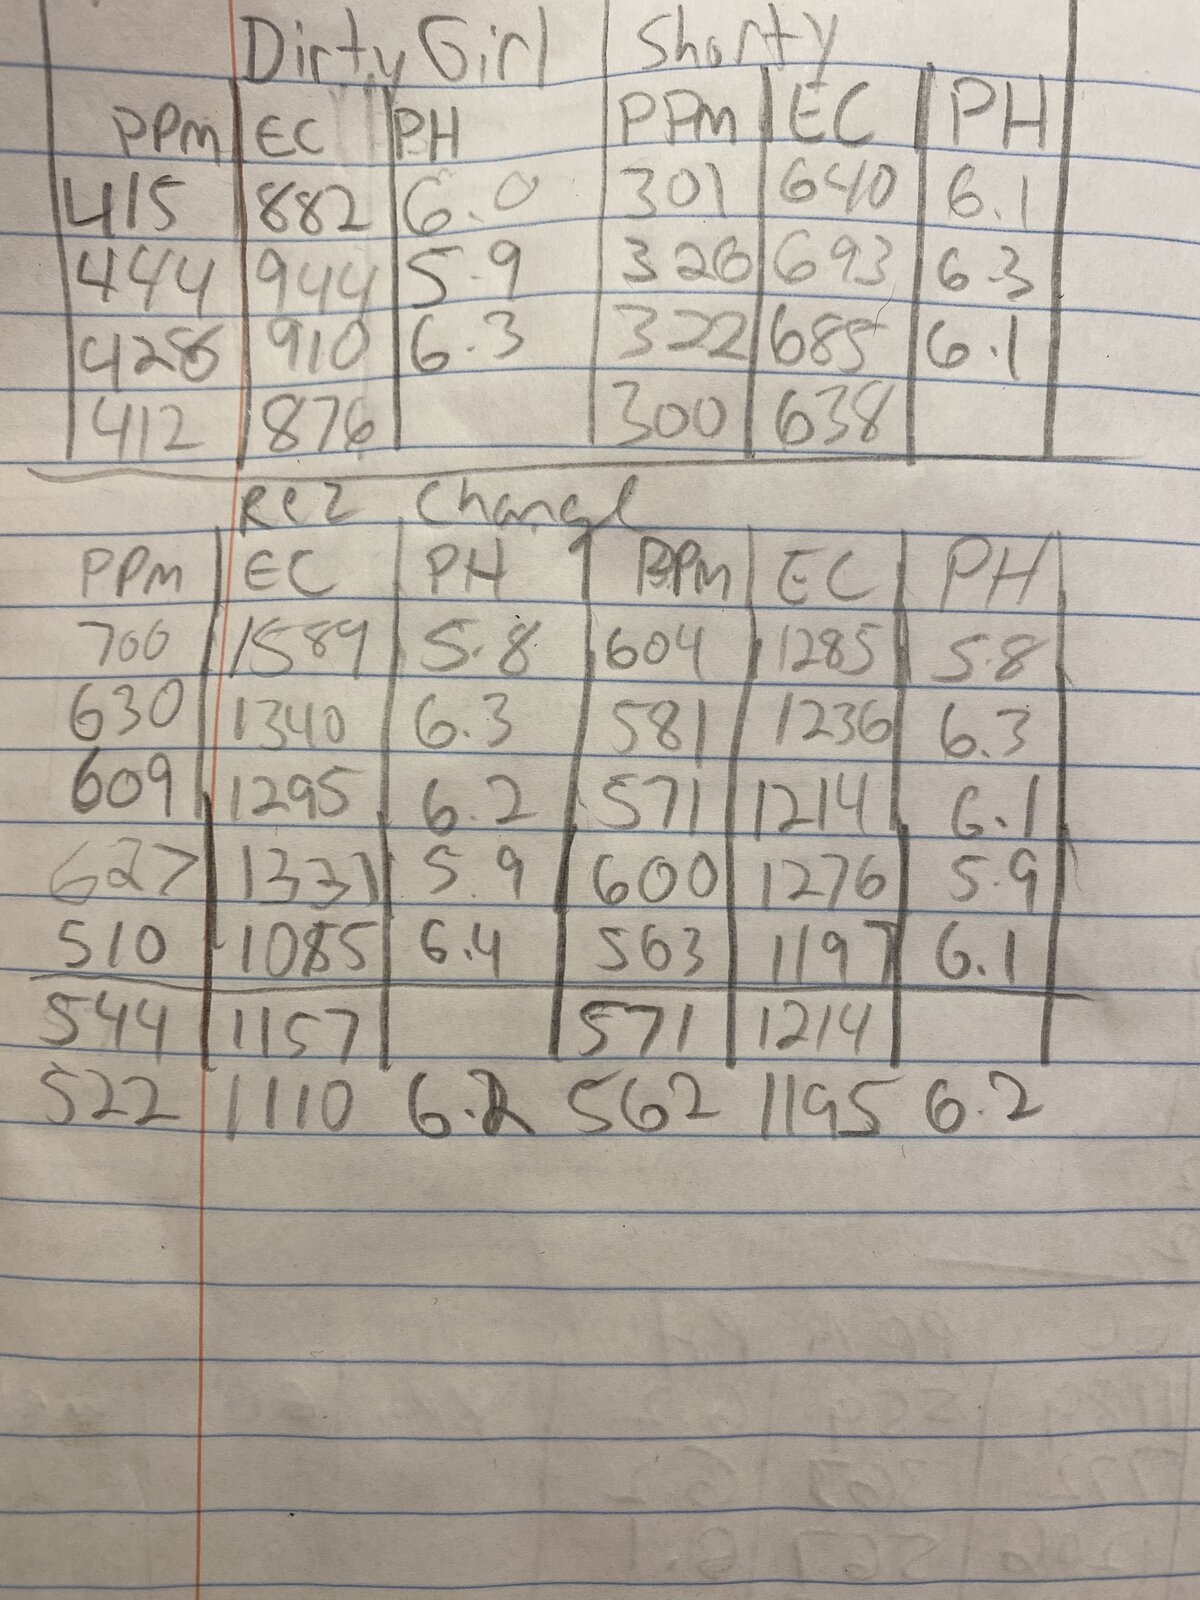 Dirty Girl Shorty
PPm EC PH PPm EC PH
415 882 6.0 301 640 6.1
444 944 5.9 326 693 6.3
428 910 6.3 322 685 6.1
412 876 300 638
Rez Change
PPm EC PH PPm EC PH
700 1589 5.8 604 1285 5.8
630 1340 6.3 581 1236 6.3
609 1295 6.2 571 1214 6.1
627 1331 5.9 600 1276 5.9
510 1085 6.4 563 1197 6.1
544 1157 571 1214
522 1110 6.2 562 1195 6.2